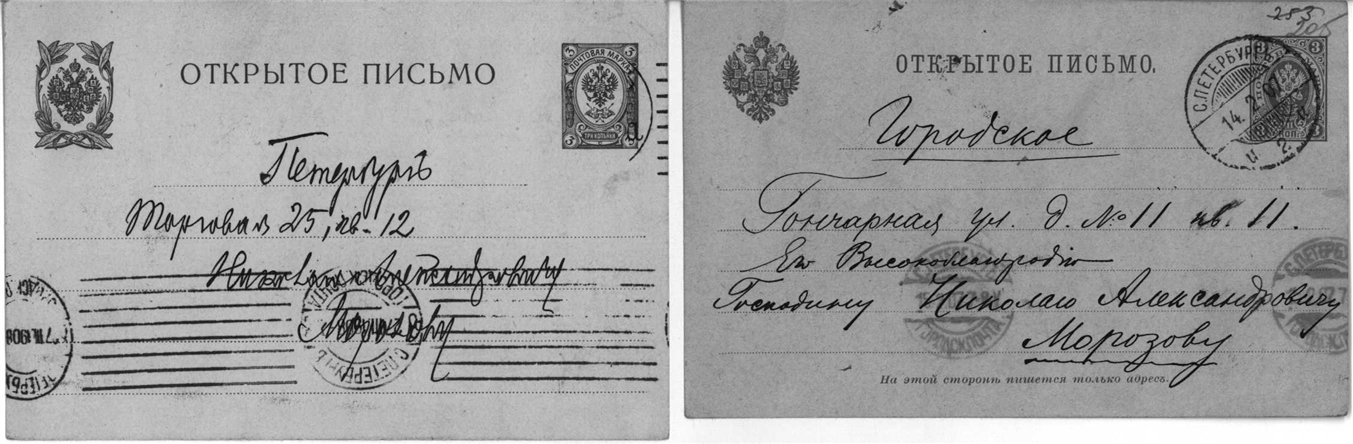 ОТКРЫТОЕ ПИСЬМО
3 ПОЧТОВАЯ МАРКА 3
3 ТРИ КОПѢЙКИ 3
Петербургъ
Торговая 25, кв. 12
Николаю Александровичу
Морозову
7 III 1908
ГОРОД. ПОЧТА
С.ПЕТЕРБУРГЪ
253
205
ОТКРЫТОЕ ПИСЬМО.
С.ПЕТЕРБУРГЪ
14. 2. 07
3
КОП.
Городское
Гончарная ул. д. № 11 кв. 11.
Его Высокоблагородію
Господину Николаю Александровичу
Морозову
С.ПЕТЕРБ
ГОРОДСК.ПОЧТА
На этой сторонѣ пишется только адресъ.